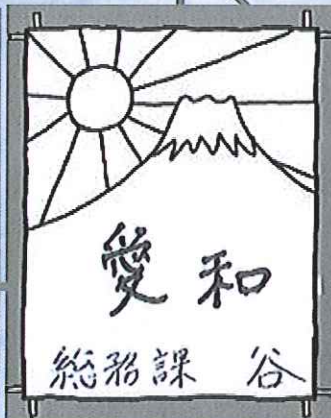 愛和
総務課 谷